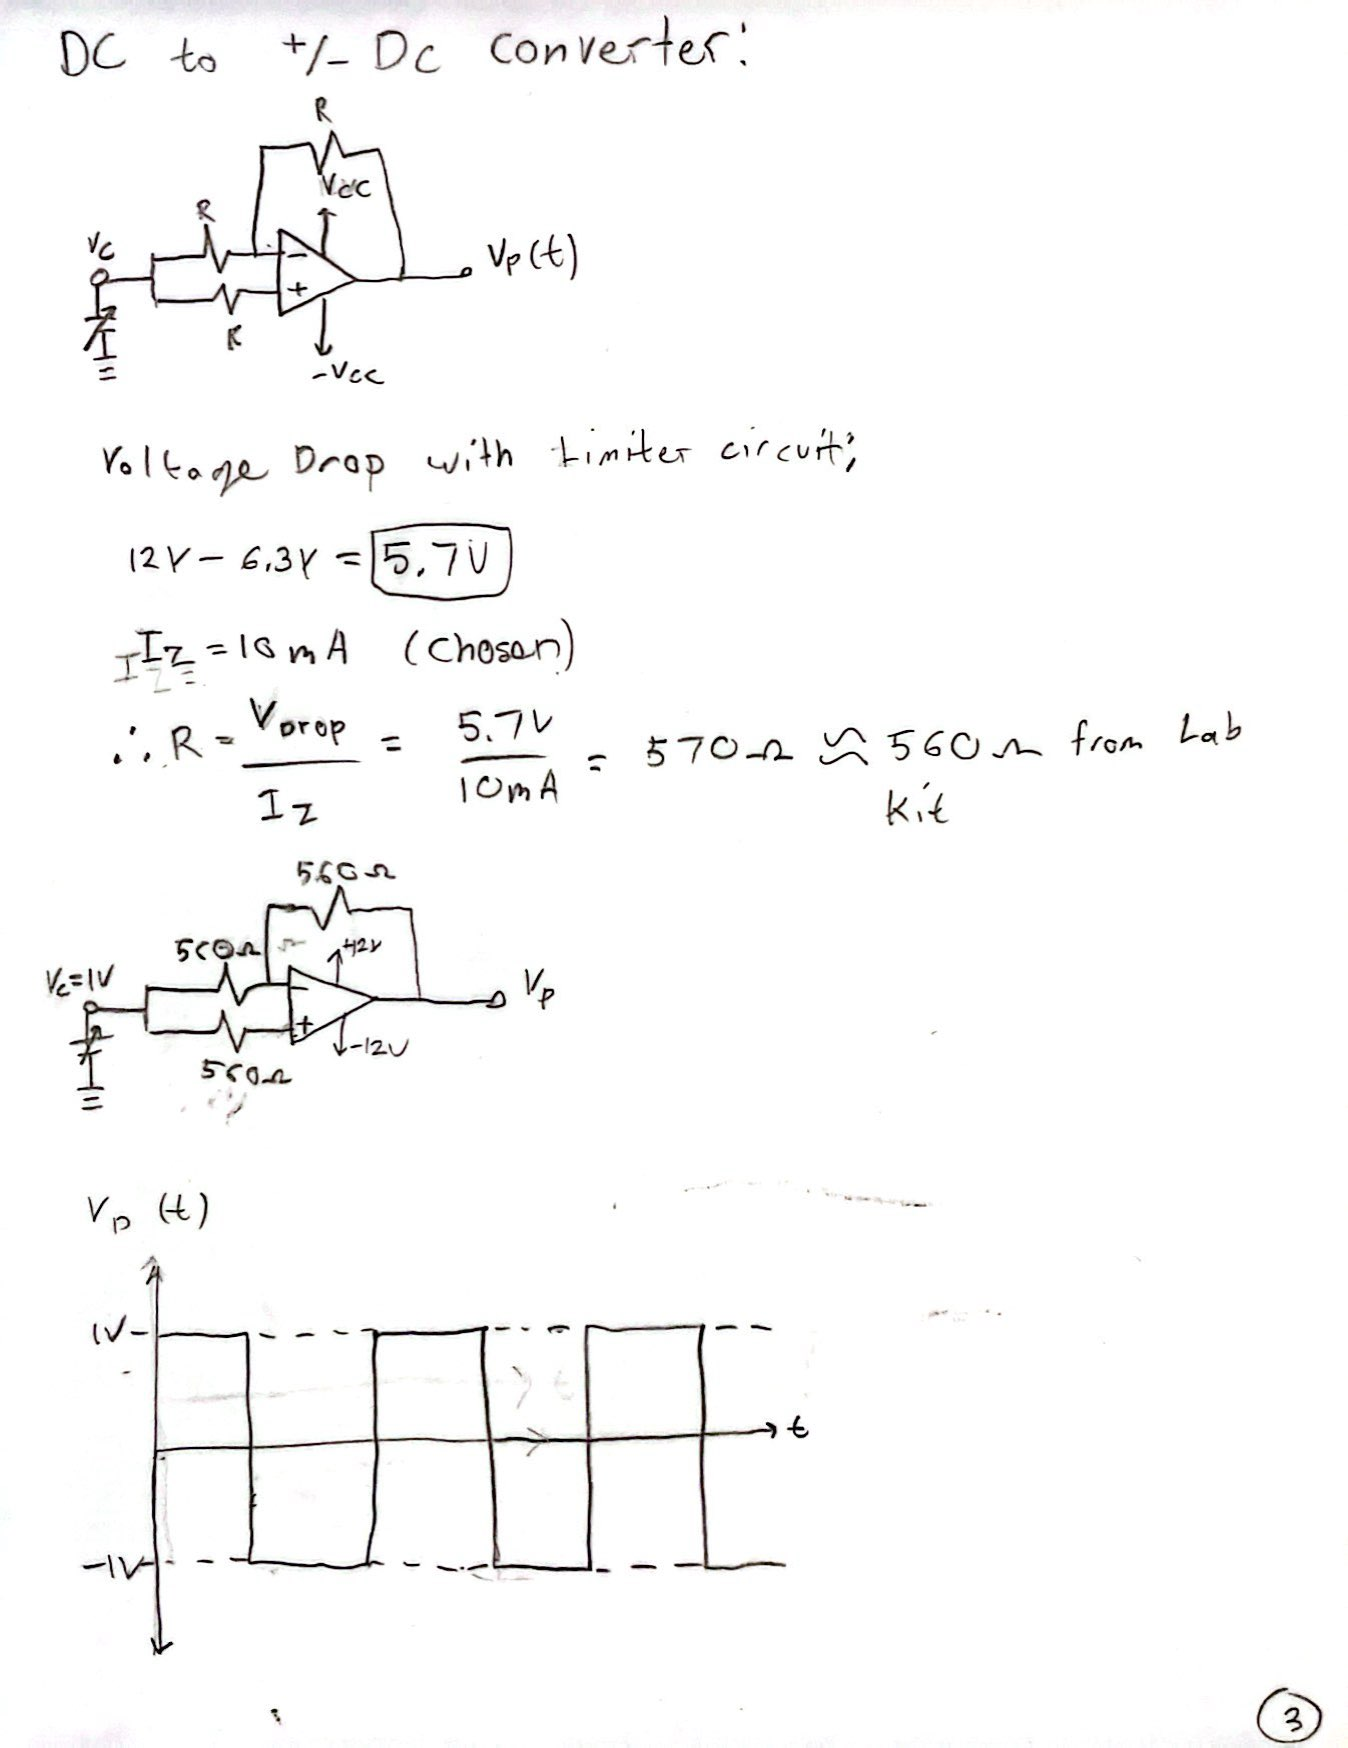 DC to +/- DC converter:
R
VCC
R
VC
Vp(t)
R
-VCC
Voltage Drop with Limiter circuit;
12V - 6.3V = 5.7V
IZ = 10mA (Chosen)
∴ R = VDrop / IZ = 5.7V / 10mA = 570Ω ≈ 560Ω from Lab
Kit
560Ω
560Ω
+12V
Vc=1V
Vp
-12V
560Ω
Vp (t)
1V
t
t
-1V
3